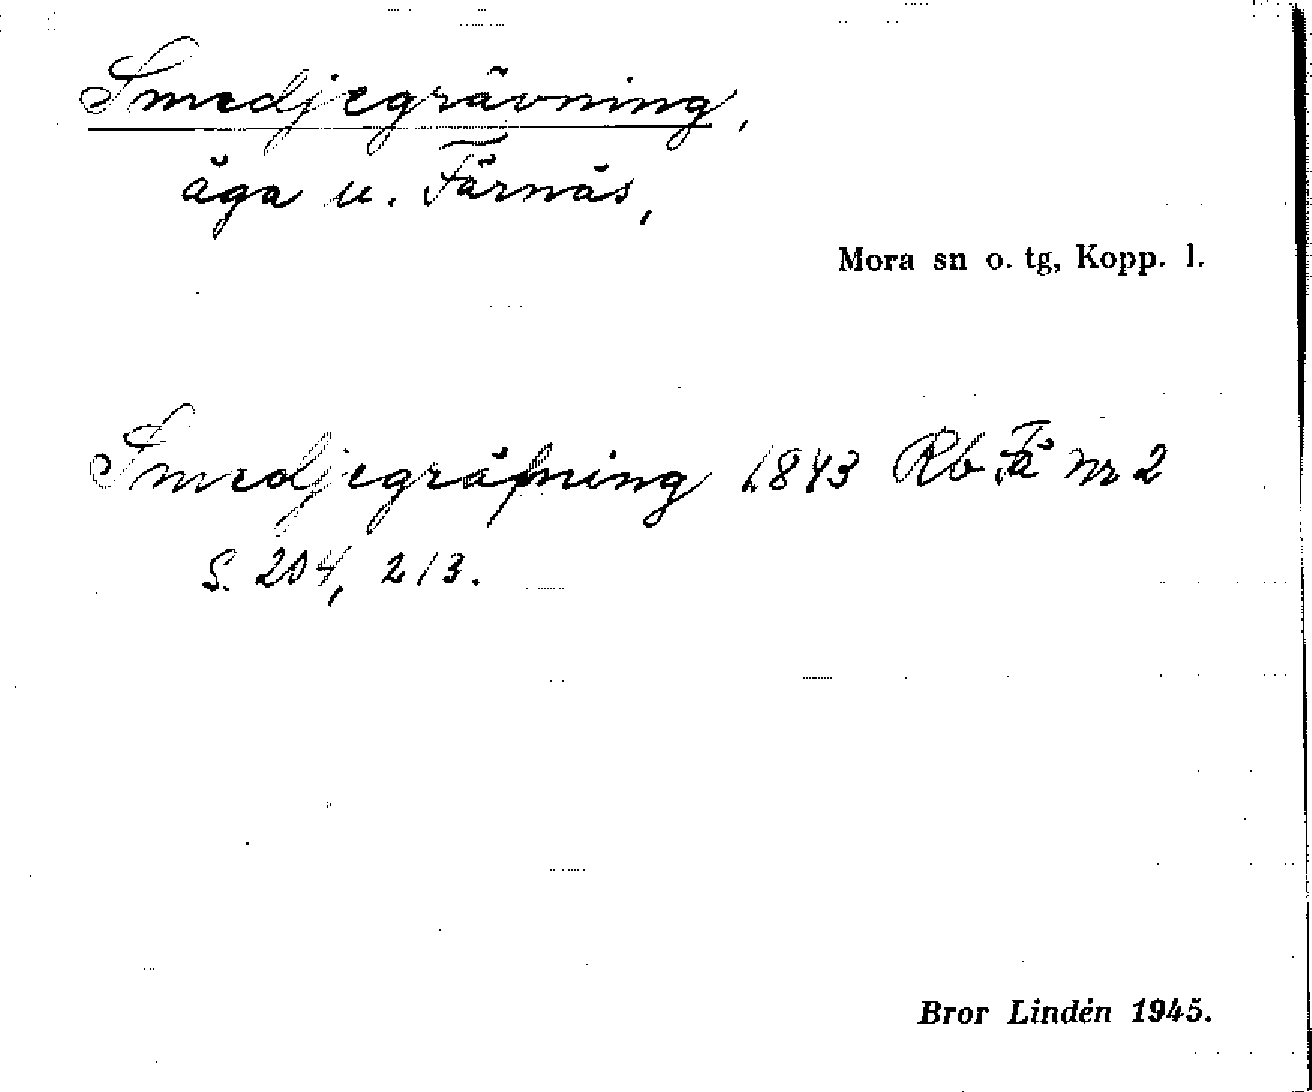 Smedjegrävning,
äga u. Färnäs,
Mora sn o. tg, Kopp. l.
Smedjegräfning 1843 Rb Fä nr 2
S. 204, 213.
Bror Lindén 1945.